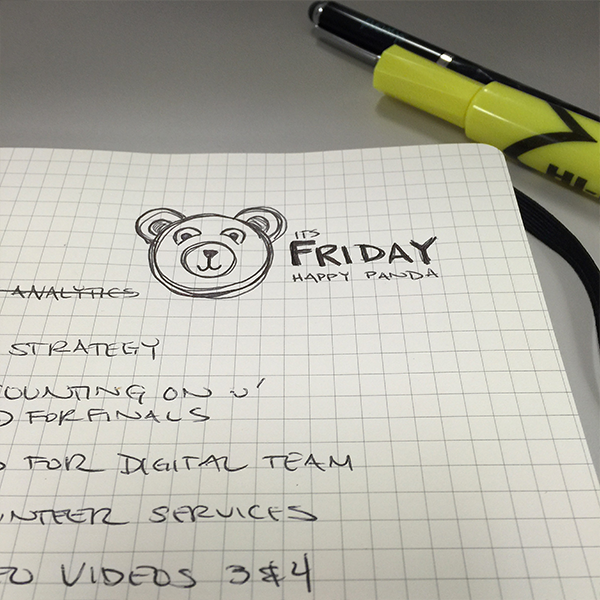 ITS
FRIDAY
HAPPY PANDA
ANALYTICS
STRATEGY
OUNTING ON
FOR FINALS
FOR DIGITAL TEAM
NTEER SERVICES
VIDEOS 3&4
HI-